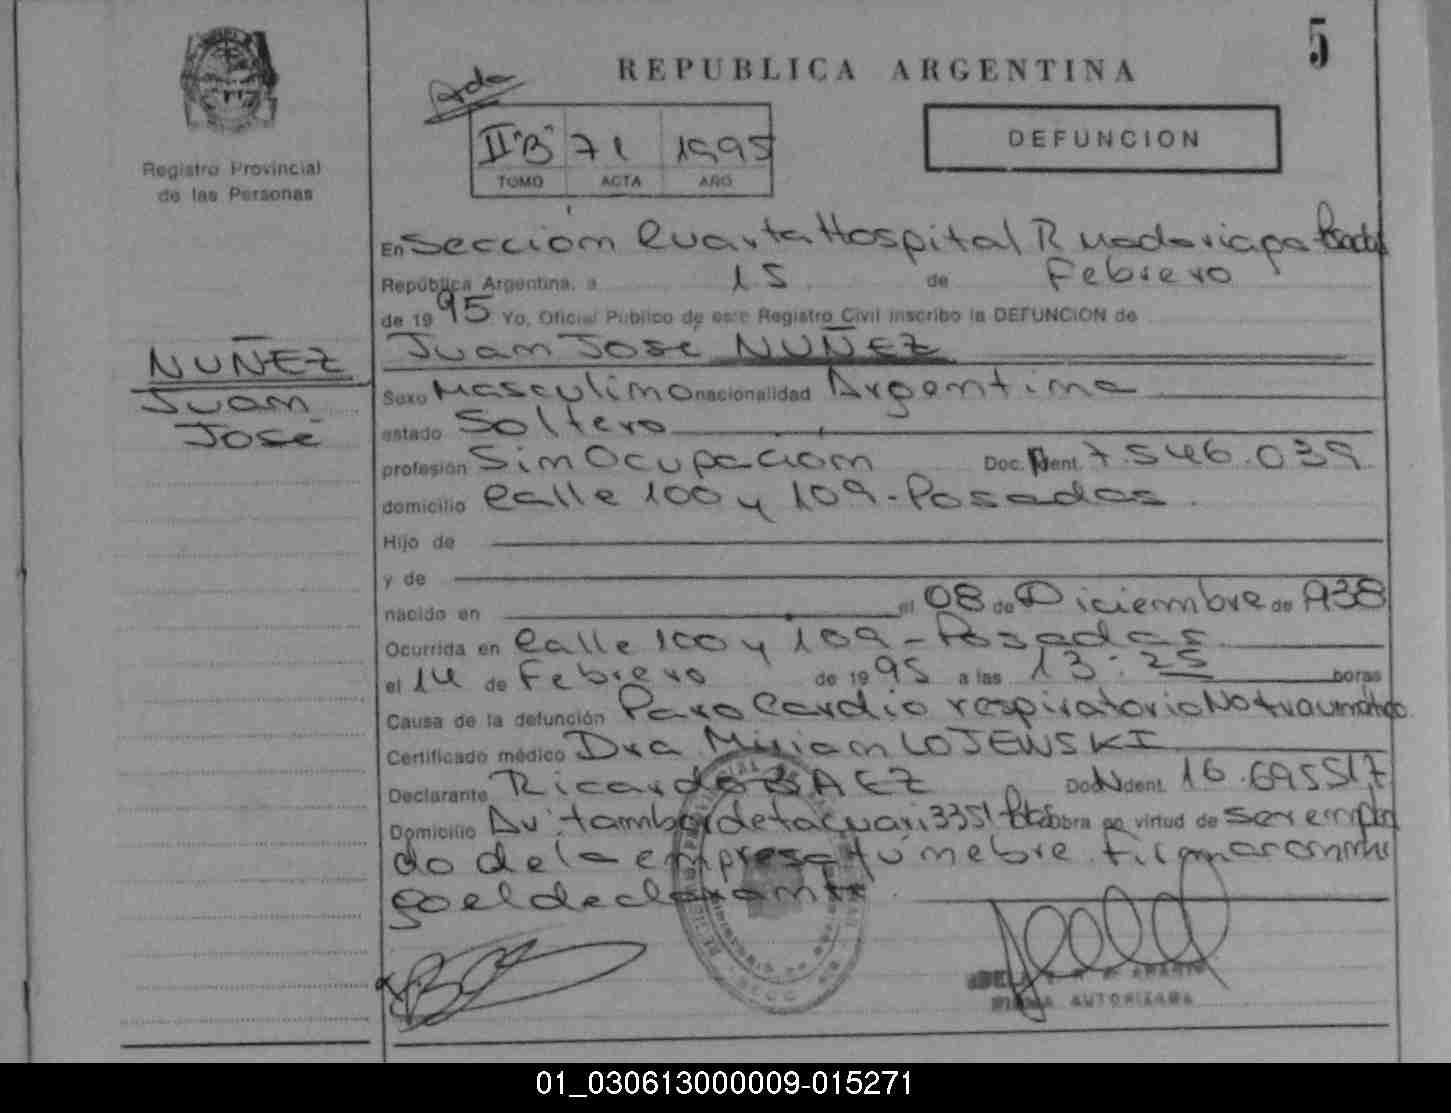 5
REPUBLICA ARGENTINA
Registro Provincial
de las Personas
II"B" 71 1995
TOMO ACTA AÑO
DEFUNCION
NUÑEZ
Juan
José
En Sección Cuarta Hospital R Madariaga
República Argentina, a 15 de Febrero
de 1995. Yo, Oficial Público de este Registro Civil inscribo la DEFUNCION de
Juan José NUÑEZ
Sexo Masculino nacionalidad Argentina
estado Soltero
profesión Sin Ocupacion Doc. Ident. 7.546.039
domicilio Calle 100 y 109 - Posadas
Hijo de
y de
nacido en el 08 de Diciembre de 938
Ocurrida en Calle 100 y 109 - Posadas
el 14 de Febrero de 1995 a las 13:25 horas
Causa de la defunción Paro Cardio respiratorio No traumático
Certificado médico Dra Miriam LOJEWSKI
Declarante Ricardo BAEZ Doc. Ident. 16.695517
Domicilio Av. tambor de tacuari 3351 Pdas obra en virtud de ser emplea
do de la empresa fúnebre. firmaran conmi
go el declarante.
FIRMA AUTORIZADA
01_030613000009-015271